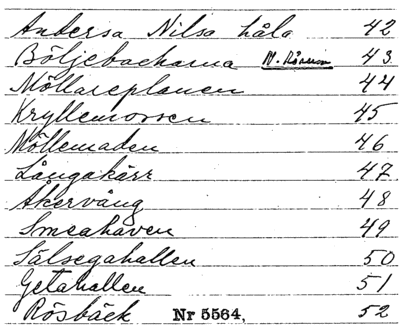 Andersa Nilsa håla 42
Böljebackarna 43
Möllareplanen 44
Kryllemossen 45
Möllemaden 46
Långakärr 47
Åkervång 48
Smeahaven 49
Sälsegahallen 50
Getahallen 51
Rösbäck Nr 5564, 52